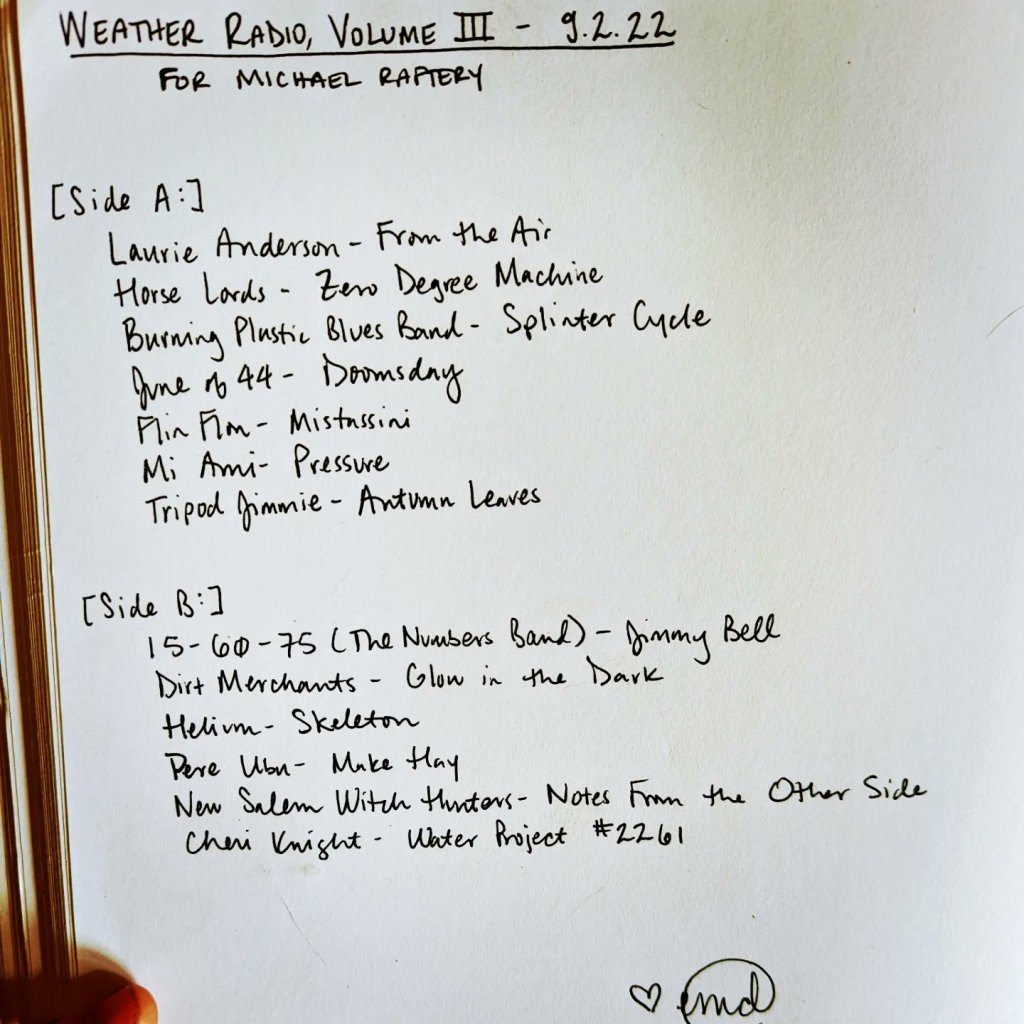 WEATHER RADIO, VOLUME III - 9.2.22
FOR MICHAEL RAFTERY
[Side A:]
Laurie Anderson - From the Air
Horse Lords - Zero Degree Machine
Burning Plastic Blues Band - Splinter Cycle
June of 44 - Doomsday
Flin Flon - Mistassini
Mi Ami - Pressure
Tripod Jimmie - Autumn Leaves
[Side B:]
15-60-75 (The Numbers Band) - Jimmy Bell
Dirt Merchants - Glow in the Dark
Helium - Skeleton
Pere Ubu - Make Hay
New Salem Witch Hunters - Notes From the Other Side
Cheri Knight - Water Project #2261
♡ emd